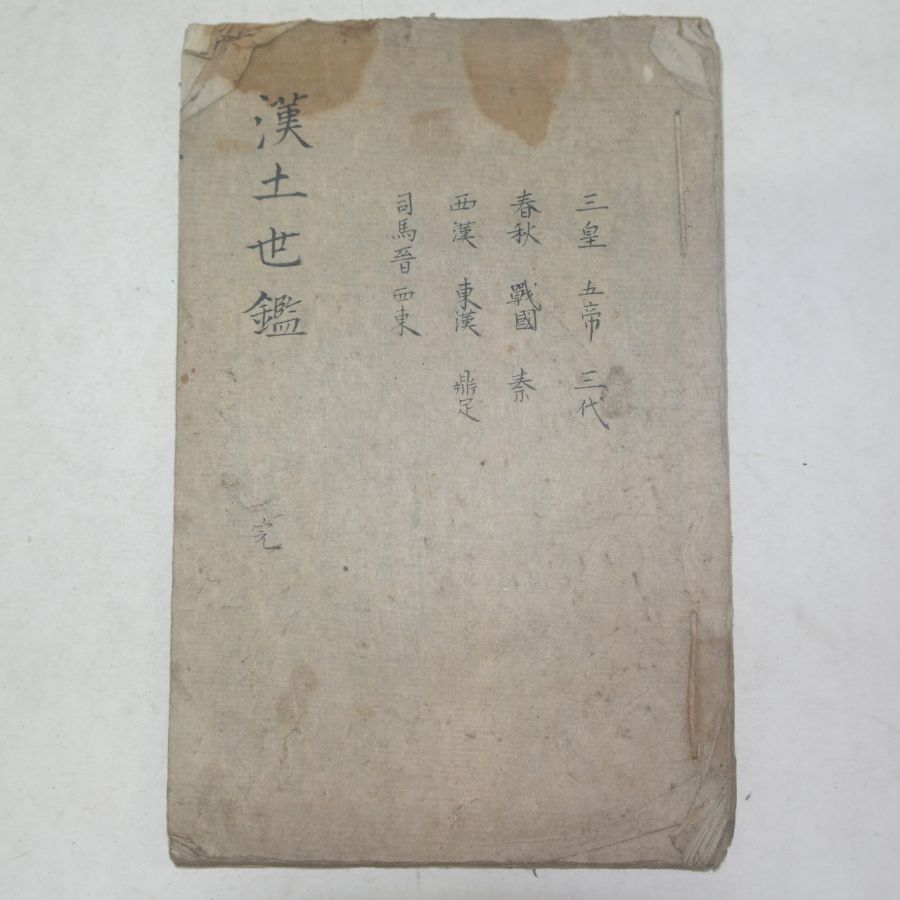 三皇 五帝 三代
春秋 戰國 秦
西漢 東漢 鼎足
司馬晉西東
漢土世鑑 完